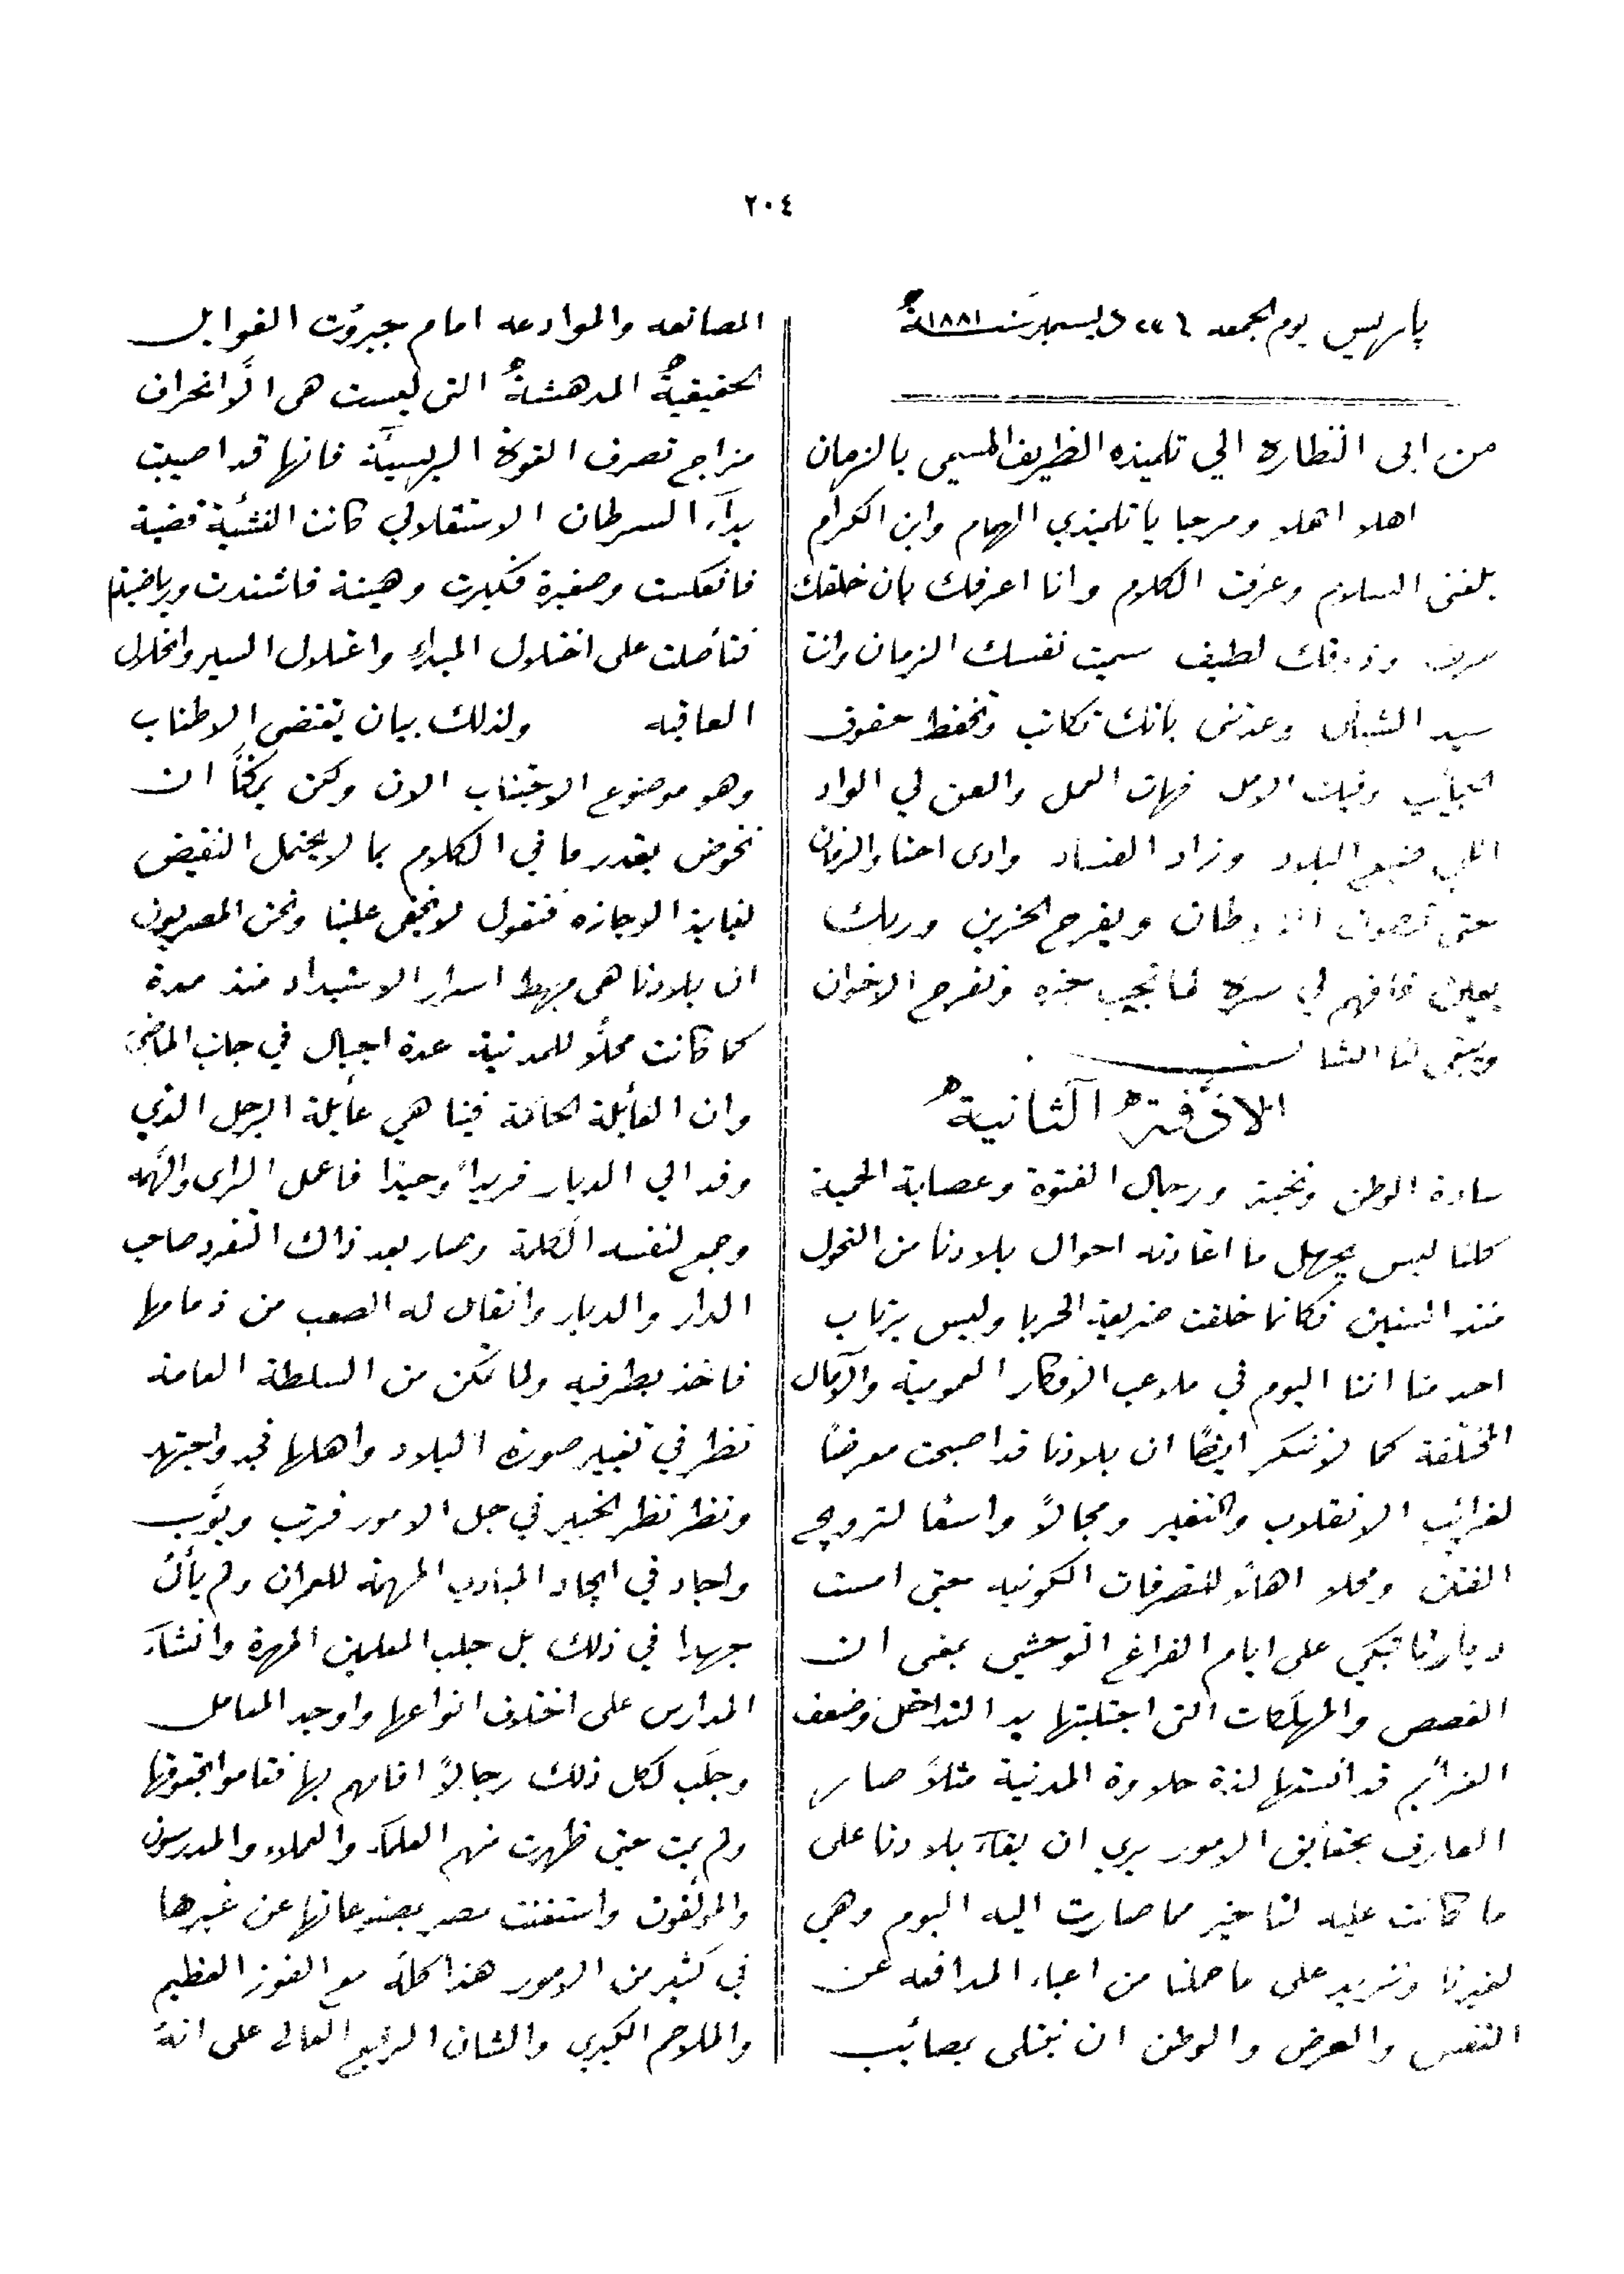 ٢٠٤
پاريس يوم الجمعه ديسمبر سنة ١٨٨١
من ابى النظارة الي تلميذه الظريف المسمى بالزمان
اهلا اهلا ومرحبا يا تلميذي الهمام وابن الكرام
بلغنى السلام وعرفت الكلام وانا اعرفك بان خلقك
وذوقك لطيف سميت نفسك الزمان وانت
سيد الشبان وعدتنى بانك تكاتب وتحفظ حقوق
الحبايب وفيك الامل فهات العمل والعن لي الواد
اللي ضيع البلاد وزاد الفساد وادى احنا والزمان
حتى تصون الاوطان ويفرح الحزين وربك
يعين وتفرح الاخوان
ويبقى لنا الشان
سادة الوطن ونخبته ورجال الفتوة وعصابة الحمية
كلنا ليس يجهل ما اعادته احوال بلادنا من التحول
منذ السنين فكانما خلقت ضريعة الحربا وليس يرتاب
احد منا اننا اليوم في ملاعب الافكار العمومية والآمال
المختلفة كما لا ننكر ايضًا ان بلادنا قد اصبحت معرضًا
لغرائب الانقلاب والتغير ومجالاً واسعًا لترويج
الفتن ومحلا اهلاً للتصرفات الكونيه حتى امست
ديارنا تبكي على ايام الفراغ التوحشي بمعنى ان
الغصص والمهلكات التى اجتلبتها يد التداخل وضعف
العزائم قد انستها لذة حلاوة المدنية مثلاً صار
العارف بحقايق الامور يري ان بقآء بلادنا على
ما كانت عليه لنا خير مما صارت اليه اليوم وهي
لغيرنا ونزيد على ما حملنا من اعباء المدافعه عن
النفس والعرض والوطن ان نبتلى بمصائب
المصانعه والموادعه امام جبروت الغوايل
الحقيقية المدهشة التى ليست هى الاَّ انحراف
مزاج تصرف القوة الريسيَّة فانها قد اصيبت
بدآء السرطان الاستقلالي كانت النشئية قضية
فانعكست وصغيرة فكبرت وهينة فاشتدت
فتأصلت على اختلال المبداء واعتلال السير وانحلال
العاقبه ولذلك بيان يقتضى الاطناب
وهو موضوع الاجتناب الان ولكن يمكنَّا ان
نخوض بقدر ما في الكلام بما لا يحتمل النقيض
لغاية الوجازه فنقول لا يخفى علينا ونحن المصريون
ان بلادنا هى مهبط اسرار الاستبداد منذ مدة
كما كانت محلاً للمدنية عدة اجيال في جانب الماضى
وان العأيلة الحاكمة فينا هي عأيلة الرجل الذي
وفد الي الديار فريداً وحيدًا فاعمل الراى والهمه
وجمع لنفسه الكلمة وصار بعد ذاك التفرد صاحب
الدار والديار وانقاد له الصعب من ذمامها
فاخذ بطرفيه ولما تمكن من السلطة العامة
نظر في تغيير صورة البلاد واهلها فجد واجتهد
ونظر نظر الخبير في جل الامور فرتب وبوَّب
واجاد في ايجاد المبادي المهمة للعمران ولم يأل
جهدا في ذلك بل جلب المعلمين المهرة وانشآء
المدارس على اختلاف انواعها واوجد المعامل
وجلَب لكل ذلك رجالاً اقامهم بها فقاموا بحقوقها
ولم يمت حتى ظهرت منهم العلمآء والعملاء والمدرسون
والمؤلفون واستغنت مصر بصنوعاتها عن غيرها
في كثير من الامور هذا كله مع الفوز العظيم
والملاحم الكبري والشان الرفيع العالى على انهُ